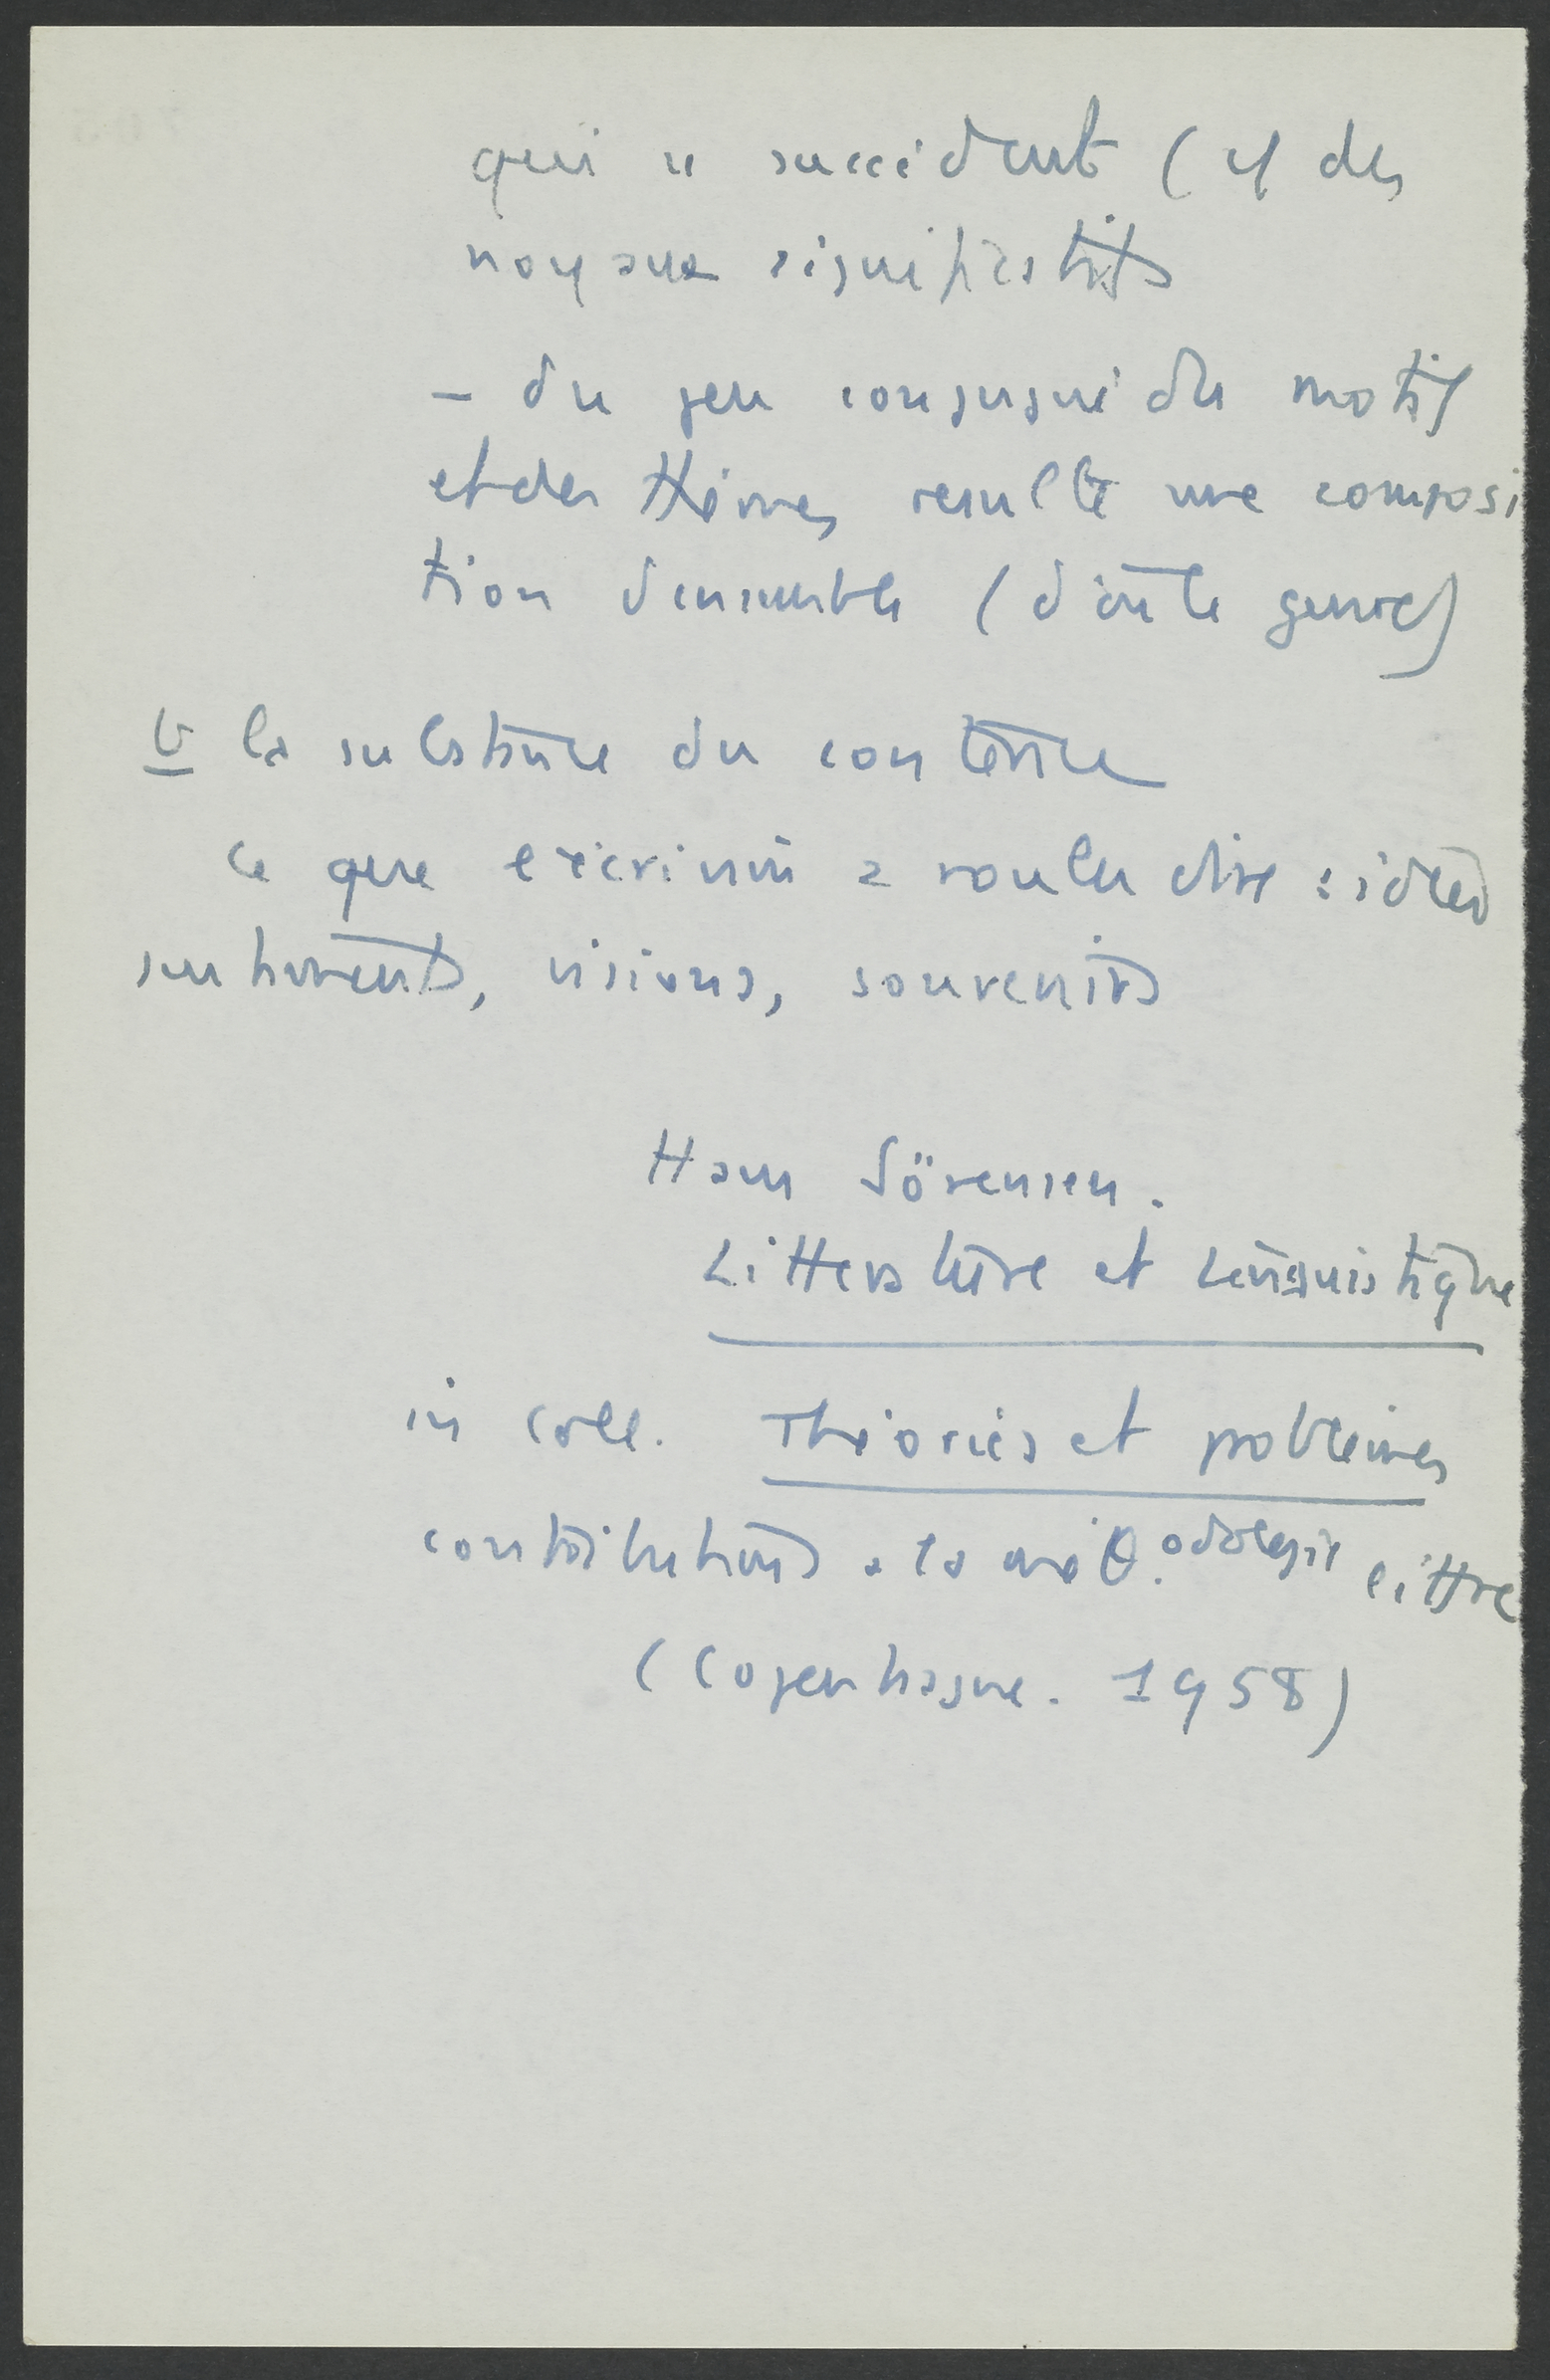 qui se succèdent (cf des
noyaux significatifs
- du jeu conjugué du motif
et des thèmes resulte une composi
tion d'ensemble (d'où le genre)
b la substance du contenu
ce que l'écrivain a voulu dire : idées
sentiments, visions, souvenirs
Hans Sörensen.
Litterature et Linguistique
in coll. Théories et problèmes
contributions a la méθ.odologie littre
(Copenhague. 1958)